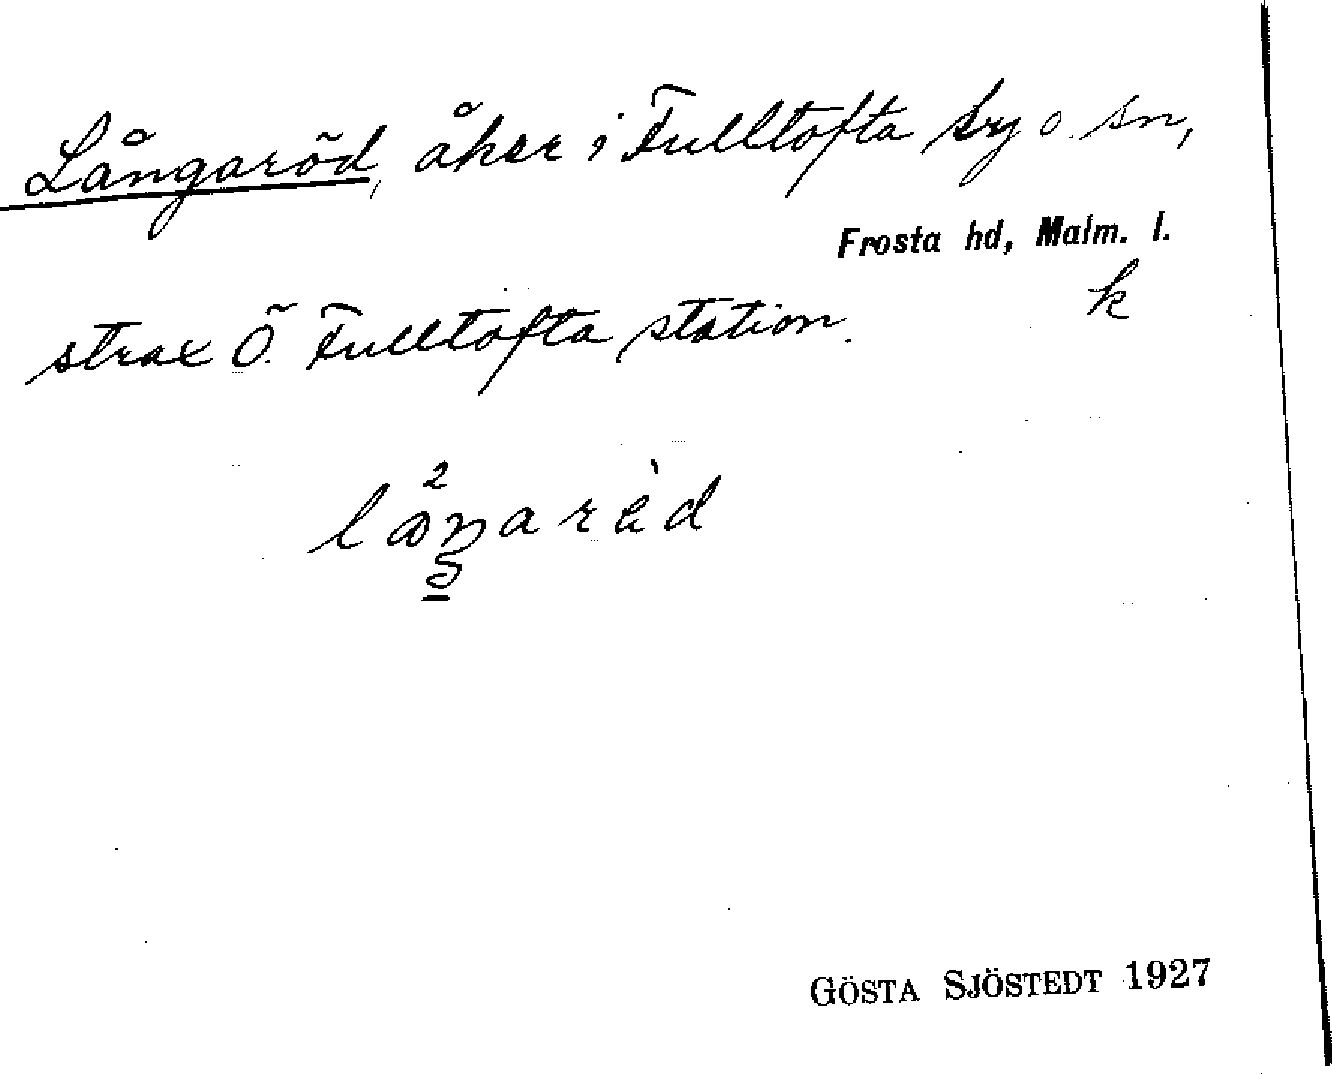 Långaröd, åker i Fulltofta by o. sn,
Frosta hd, Malm. l.
k
strax Ö. Fulltofta station.
GÖSTA SJÖSTEDT 1927